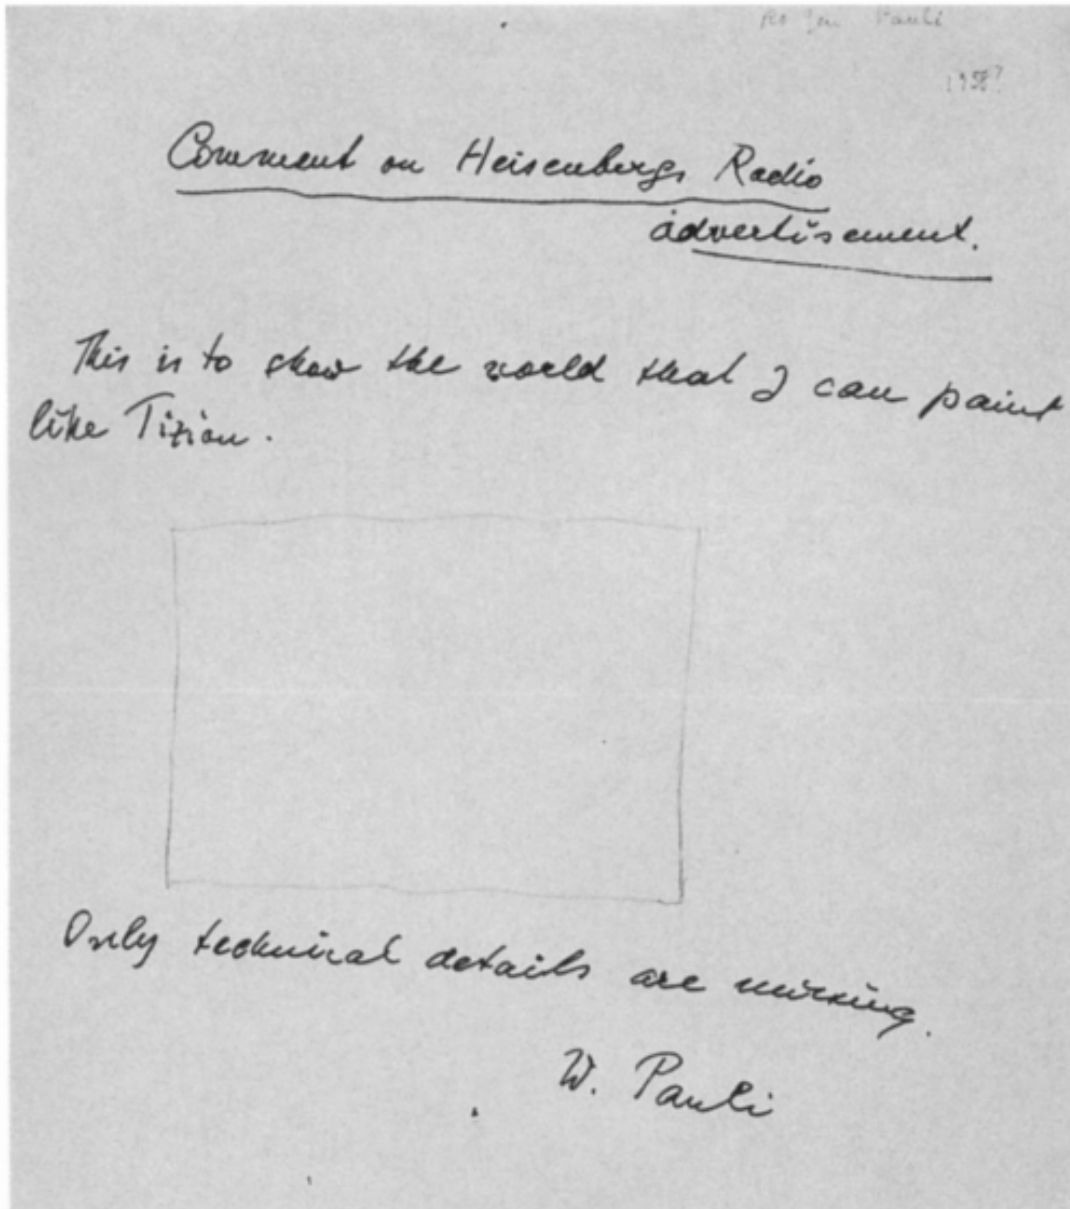 Pauli
1958?
Comment on Heisenbergs Radio
advertisement.
This is to show the world that I can paint
like Tizian.
Only technical details are missing.
W. Pauli